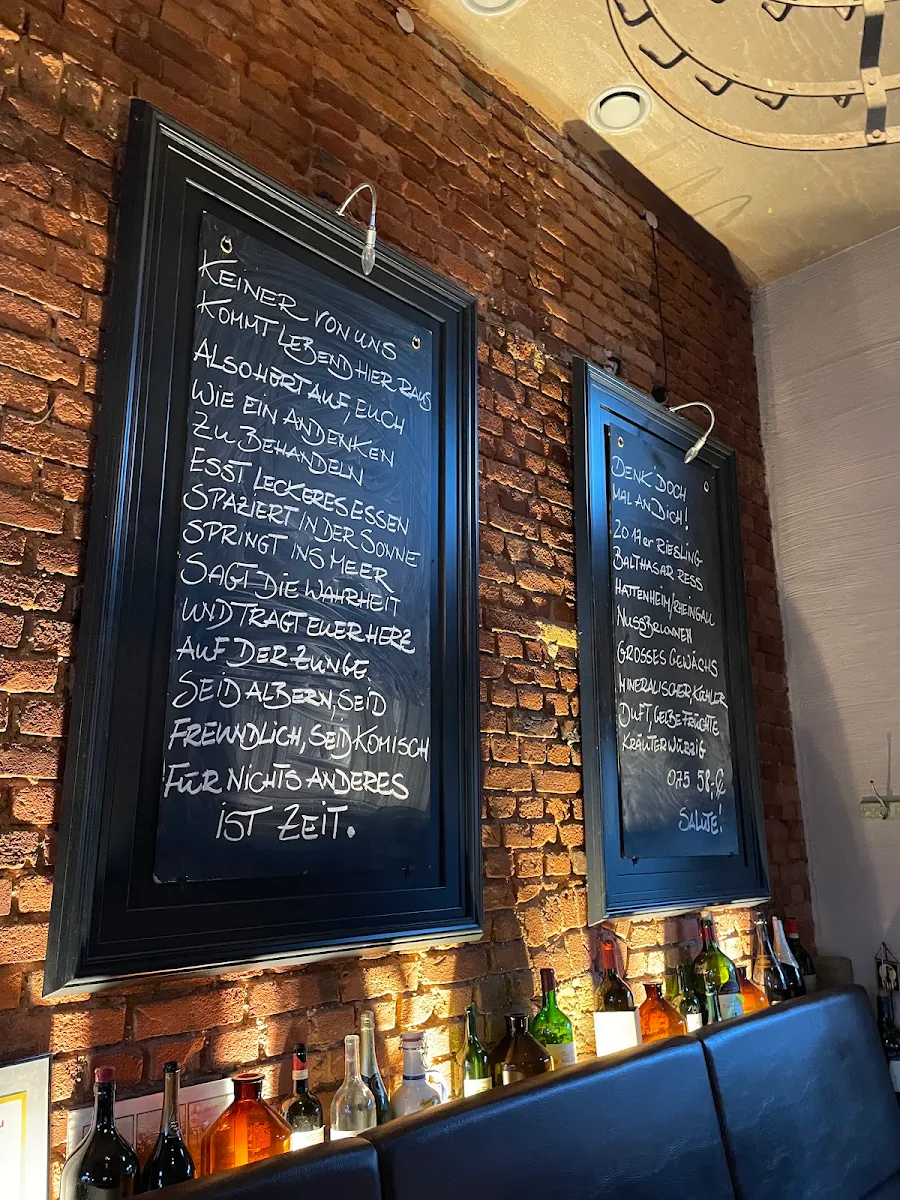 KEINER VON UNS
KOMMT LEBEND HIER RAUS
ALSO HÖRT AUF, EUCH
WIE EIN ANDENKEN
ZU BEHANDELN
ESST LECKERES ESSEN
SPAZIERT IN DER SONNE
SPRINGT INS MEER
SAGT DIE WAHRHEIT
UND TRAGT EUER HERZ
AUF DER ZUNGE.
SEID ALBERN, SEID
FREUNDLICH, SEID KOMISCH
FÜR NICHTS ANDERES
IST ZEIT.
DENK DOCH
MAL AN DICH!
2017er RIESLING
BALTHASAR RESS
HATTENHEIM/RHEINGAU
NUSSBRUNNEN
GROSSES GEWÄCHS
MINERALISCHER, KÜHLER
DUFT, GELBE FRÜCHTE
KRÄUTERWÜRZIG
0,75 58,-€
SALUTE!